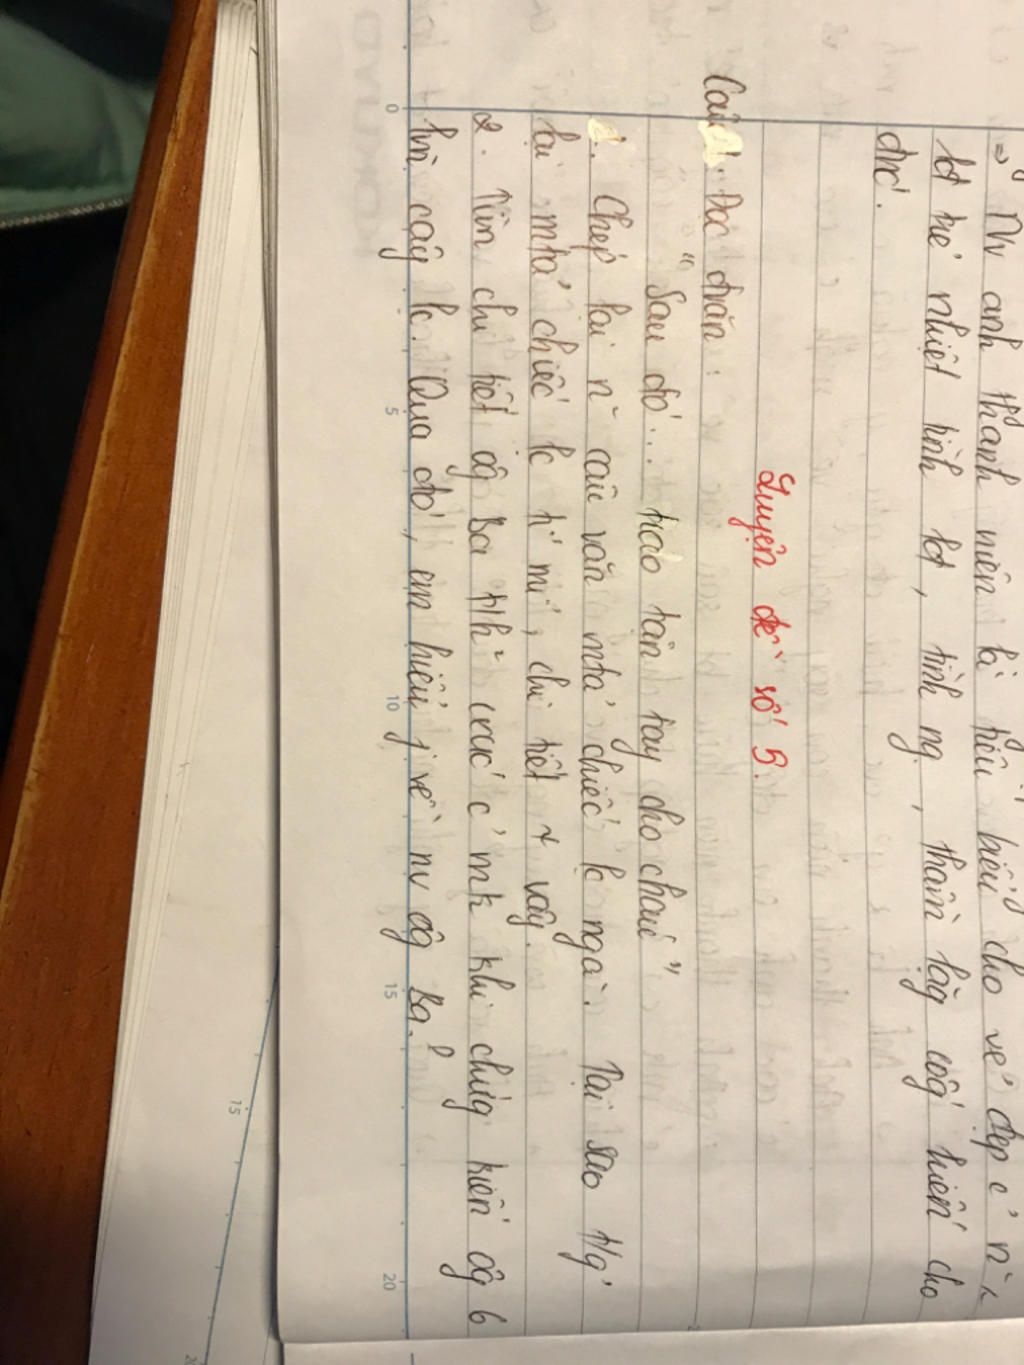 =) Nv anh thanh niên là tiêu biểu cho vẻ đẹp c' n~
tgt trẻ nhiệt tình lđ, tình ng, thầm lặg cốg hiến cho
đnc'.
Luyện đề số 5.
Câu 1. Đọc đoạn:
" Sau đó... trao tận tay cho cháu"
1. Chép lại n~ câu văn mtả chiếc lc ngà. Tại sao t/g'
lại mtả chiếc lc tỉ mỉ, chi tiết + vậy.
2. Tìm chi tiết ôg Ba t/h² cxúc c' mk khi chứg kiến ôg 6
làm cây lc. Qua đó, em hiểu j về nv ôg Ba?
0
5
10
15
20
15